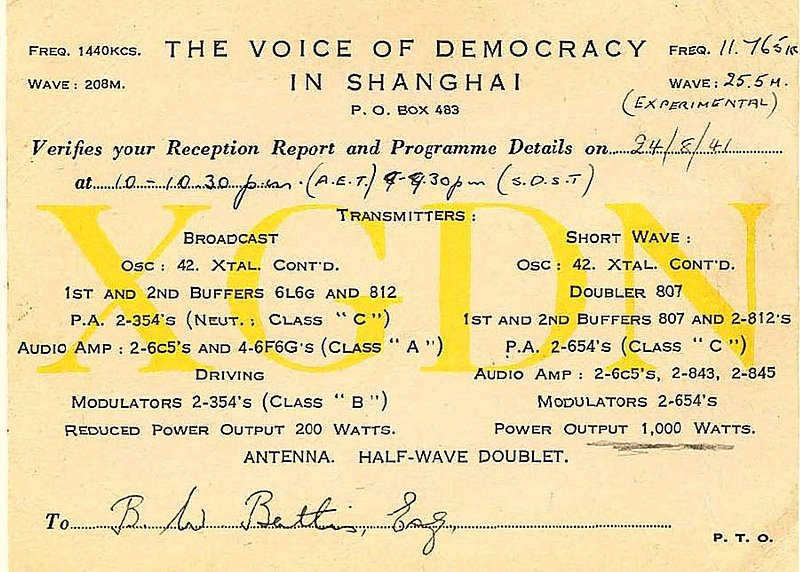 FREQ. 1440KCS. THE VOICE OF DEMOCRACY FREQ. 11.765
WAVE: 208M. IN SHANGHAI WAVE: 25.5 M.
P. O. BOX 483 (EXPERIMENTAL)
Verifies your Reception Report and Programme Details on 24/8/41
at 10 - 10.30 p.m. (A.E.T.) 9.30 pm (S.D.S.T)
XGDN
TRANSMITTERS:
BROADCAST
OSC: 42. XTAL. CONT'D.
1ST AND 2ND BUFFERS 6L6G AND 812
P.A. 2-354'S (NEUT.; CLASS "C")
AUDIO AMP: 2-6C5'S AND 4-6F6G'S (CLASS "A")
DRIVING
MODULATORS 2-354'S (CLASS "B")
REDUCED POWER OUTPUT 200 WATTS.
SHORT WAVE:
OSC: 42. XTAL. CONT'D.
DOUBLER 807
1ST AND 2ND BUFFERS 807 AND 2-812'S
P.A. 2-654'S (CLASS "C")
AUDIO AMP: 2-6C5'S, 2-843, 2-845
MODULATORS 2-654'S
POWER OUTPUT 1,000 WATTS.
ANTENNA. HALF-WAVE DOUBLET.
To B. W Bettis, Esq.
P. T. O.